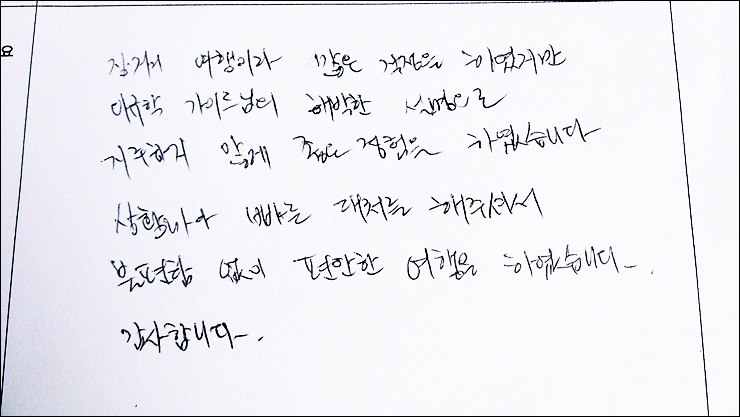 장거리 여행이라 많은 걱정을 하였지만
이규학 가이드님의 해박한 설명으로
지루하지 않게 좋은 경험을 하였습니다
상황마다 바른 대처를 해주셔서
불편함 없이 편안한 여행을 하였습니다~.
감사합니다~.
요